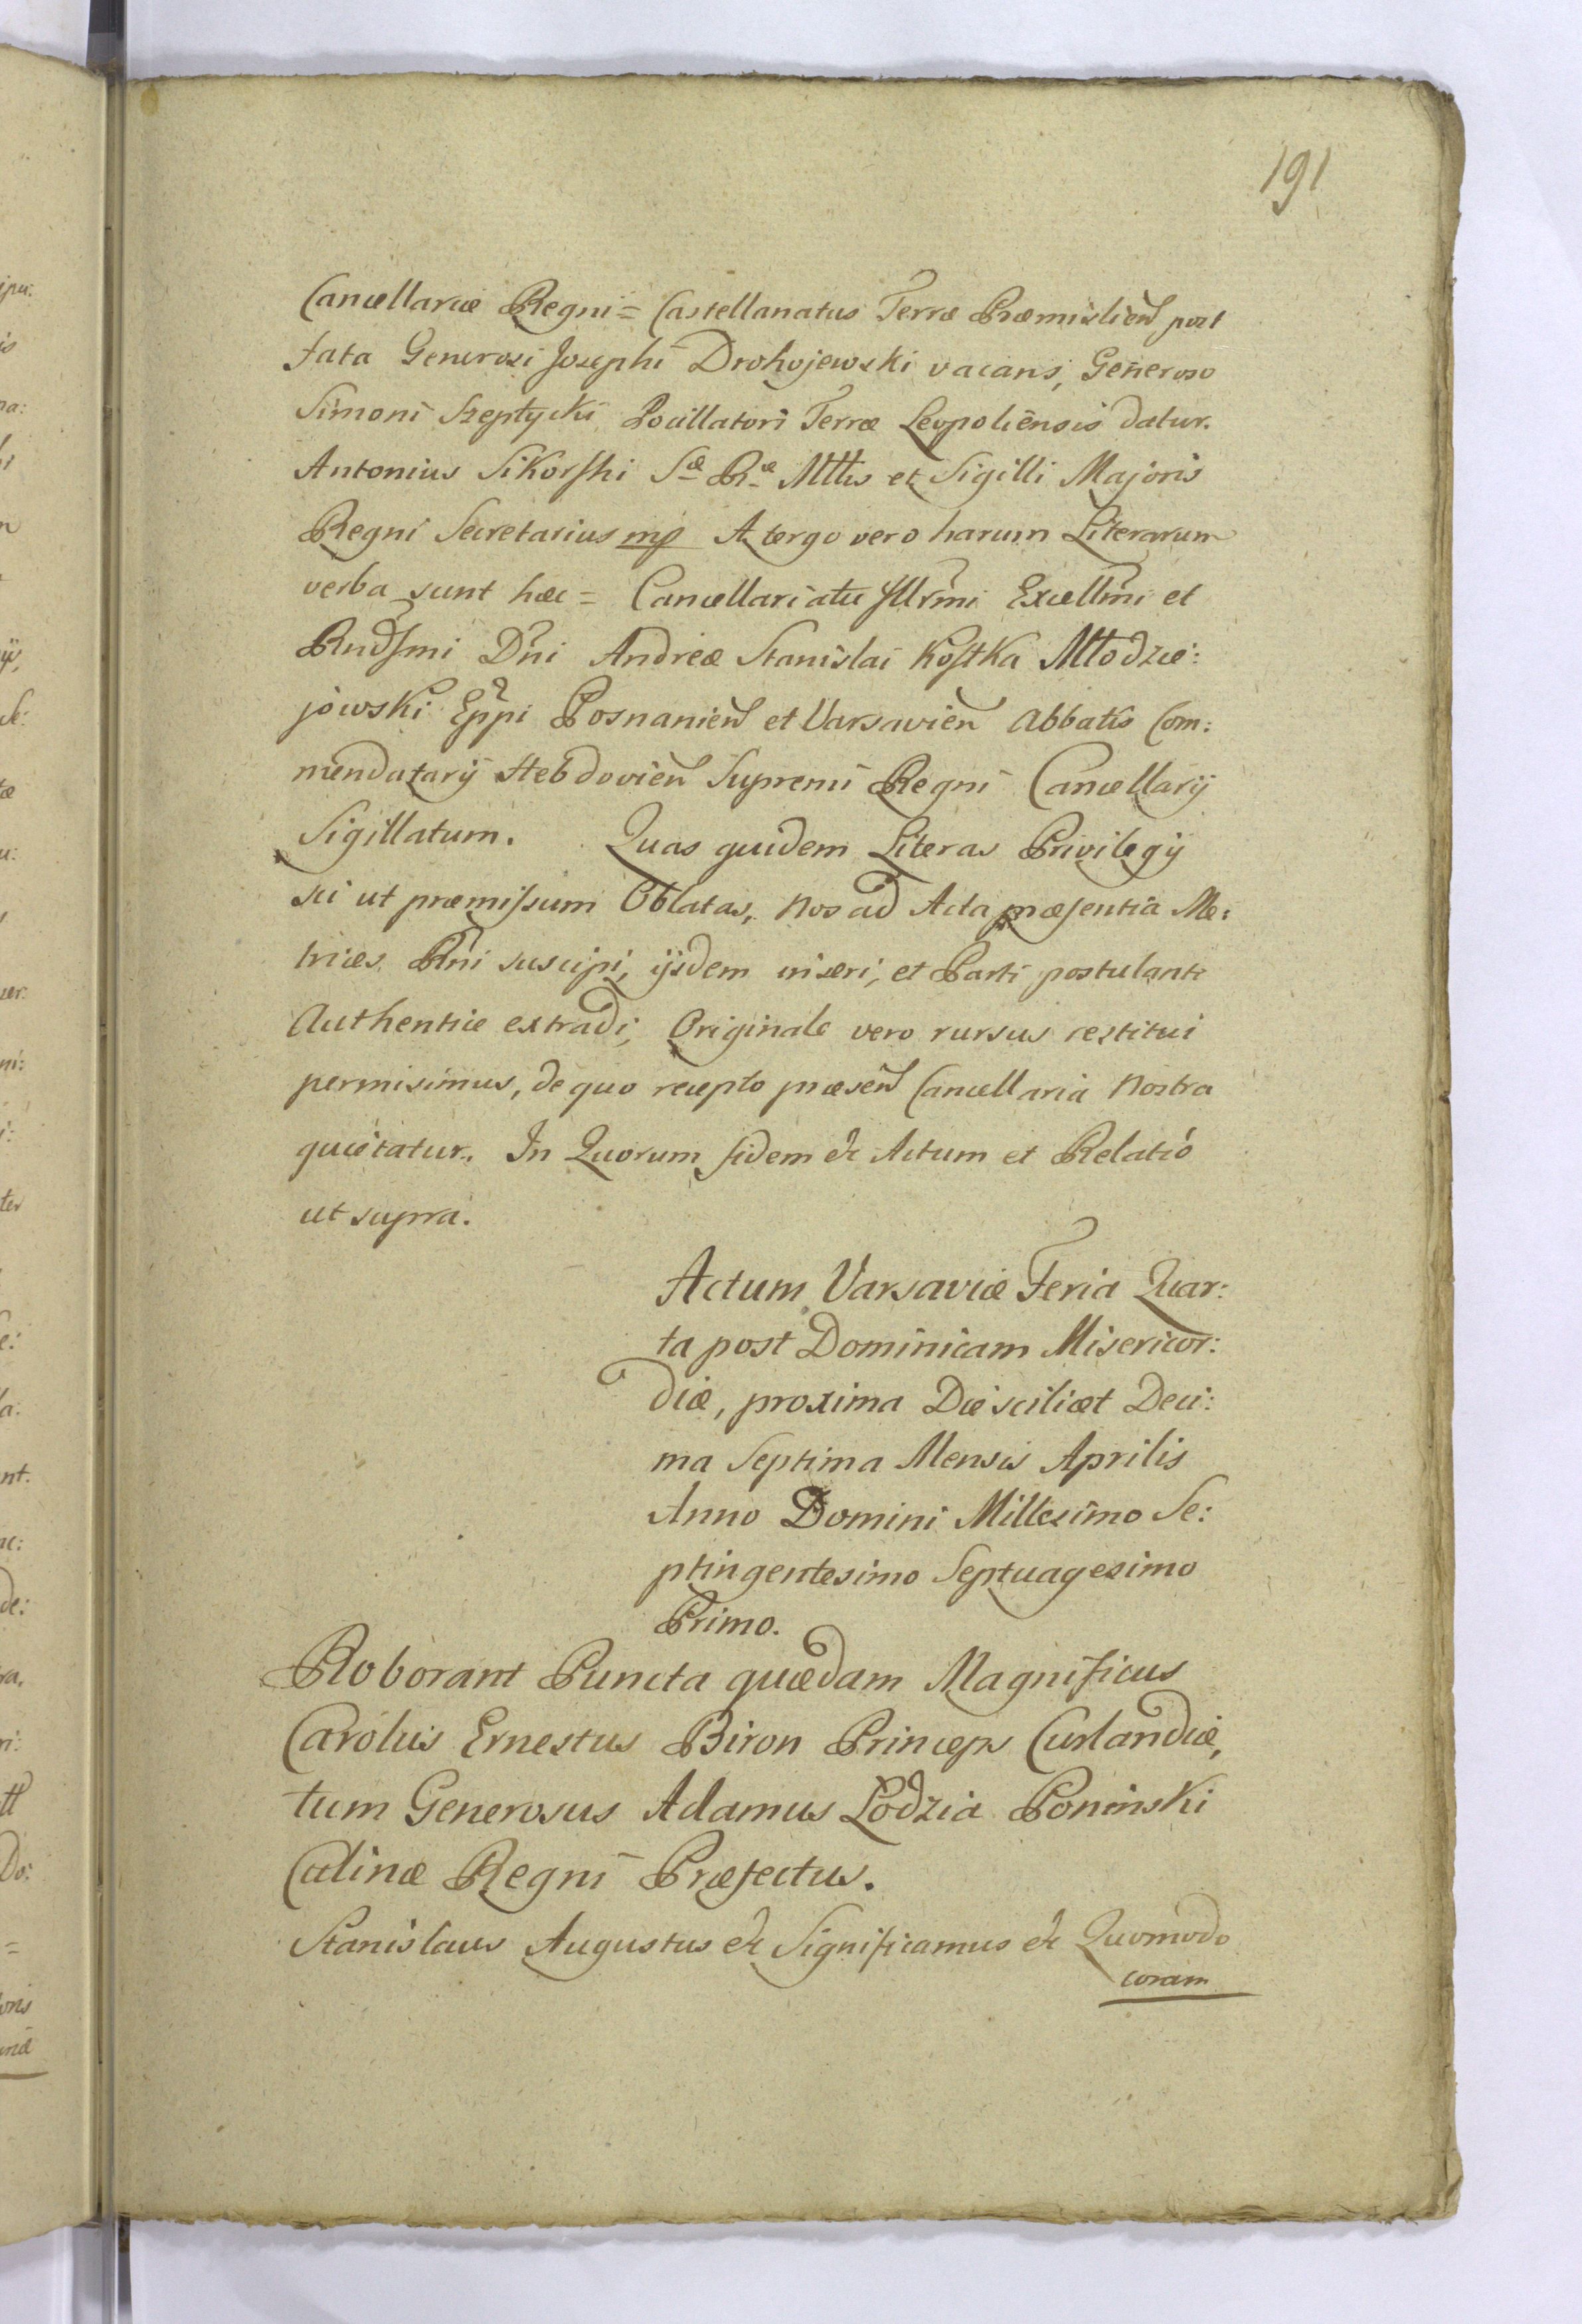 191
Cancellariæ Regni = Castellanatus Terræ Præmislien̄ post
fata Generosi Josephi Drohojewski vacans, Generoso
Simoni Szeptycki Pocillatori Terræ Leopoliensis datur.
Antonius Sikorski Sæ Ræ Mttis et Sigilli Majoris
Regni Secretarius mp A tergo vero harum Literarum
verba sunt hæc = Cancellariatu Illrm̄i Excellm̄i et
Rndſmi Dn̄i Andreæ Stanislai Kostka Młodzie:
jowski Epp̄i Posnanien̄ et Varsavien̄ Abbatis Com:
mendatarij Hebdovien̄ Supremi Regni Cancellarij
Sigillatum. Quas quidem Literas Privilegij
sic ut præmiſsum Oblatas, nos ad Acta præsentia Me:
trices Rn̄i suscipi, ijsdem inseri, et Parti postulanti
Authentice extradi, Originale vero rursus restitui
permisimus, de quo recepto præsen̄ Cancellaria nostra
quietatur. In Quorum fidem &c Actum et Relatio
ut supra.
Actum Varsaviæ Feria Quar:
ta post Dominicam Misericor:
diæ, proxima Die scilicet Deci:
ma Septima Mensis Aprilis
Anno Domini Millesimo Se:
ptingentesimo Septuagesimo
Primo.
Roborant Puncta quædam Magnificus
Carolus Ernestus Biron Princeps Curlandiæ,
tum Generosus Adamus Lodzia Poninski
Culinæ Regni Præfectus.
Stanislaus Augustus &c Significamus &c Quomodo
coram